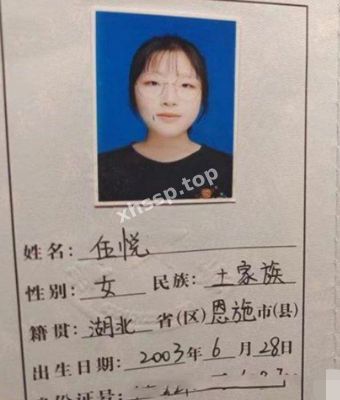 xhssp.top
姓名: 伍悦
性别: 女 民族: 土家族
籍贯: 湖北 省(区) 恩施 市(县)
出生日期: 2003 年 6 月 28 日